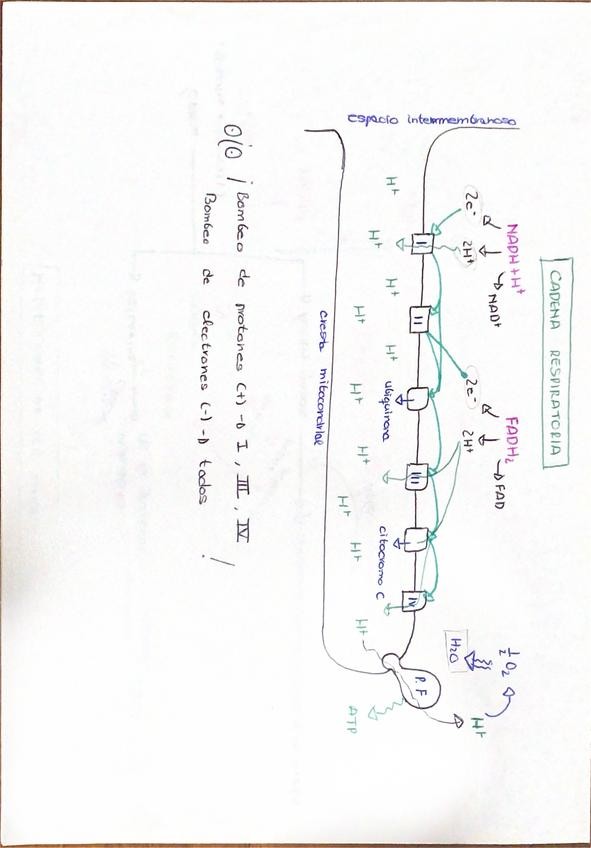 CADENA RESPIRATORIA
NADH+H⁺
NAD⁺
2e⁻
2H⁺
FADH₂
FAD
2e⁻
2H⁺
½ O₂
H₂O
H⁺
espacio intermembranoso
I
II
ubiquinona
III
citocromo C
IV
P.F
ATP
H⁺
H⁺
H⁺
H⁺
H⁺
H⁺
H⁺
H⁺
H⁺
H⁺
cresta mitocondrial
OJO ¡ Bombeo de protones (+) → I, III, IV
Bombeo de electrones (-) → todos !